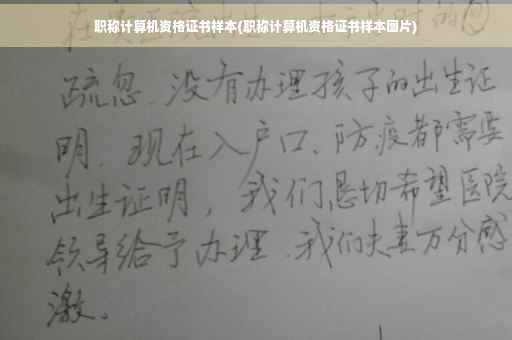 职称计算机资格证书样本(职称计算机资格证书样本图片)
疏忽、没有办理孩子的出生证
明、现在入户口、防疫都需要
出生证明，我们恳切希望医院
领导给予办理、我们夫妻万分感
激。